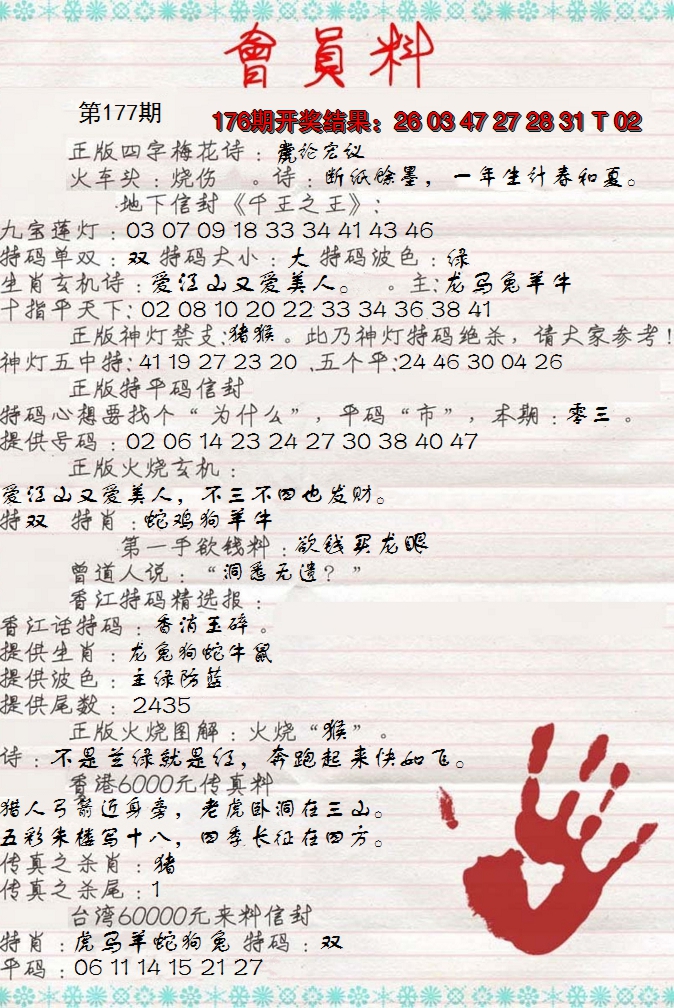 會員料
第177期
176期开奖结果：26 03 47 27 28 31 T 02
正版四字梅花诗：虎论宏议
火车头：烧伤 。诗：断纸馀墨，一年生计春和夏。
地下信封《千王之王》：
九宝莲灯：03 07 09 18 33 34 41 43 46
特码单双：双 特码大小：大 特码波色：绿
生肖玄机诗：爱江山又爱美人。 。主：龙马兔羊牛
十指平天下：02 08 10 20 22 33 34 36 38 41
正版神灯禁支：猪猴。此乃神灯特码绝杀，请大家参考！
神灯五中特：41 19 27 23 20 、五个平：24 46 30 04 26
正版特平码信封
特码心想要找个“为什么”，平码“市”，本期：零三 。
提供号码：02 06 14 23 24 27 30 38 40 47
正版火烧玄机：
爱江山又爱美人，不三不四也发财。
特双 特肖：蛇鸡狗羊牛
第一手欲钱料：欲钱买龙眼
曾道人说：“洞悉无遗？”
香江特码精选报：
香江话特码：香消玉碎。
提供生肖：龙兔狗蛇牛鼠
提供波色：主绿防蓝
提供尾数：2435
正版火烧图解：火烧“猴”。
诗：不是兰绿就是红，奔跑起来快如飞。
香港6000元传真料
猎人弓箭近身旁，老虎卧洞在三山。
五彩朱楼写十八，四季长征在四方。
传真之杀肖：猪
传真之杀尾：1
台湾60000元来料信封
特肖：虎马羊蛇狗兔 特码：双
平码：06 11 14 15 21 27